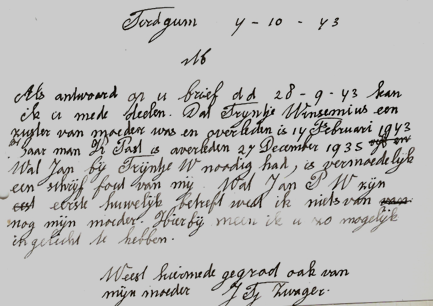 Firdgum 4-10-43
M
Als antwoord op u brief dd 28-9-43 kan
ik u mede deelen. Dat Trijntje Winsemius een
zuster van moeder was en overleden is 14 Februari 1943
Haar man Tj Tast is overleden 27 December 1935
Wat Jan bij Trijntje W noodig had, is vermoedelyk
een schrijf fout van my. Wat Jan P W zijn
eerste huwelijk betreft weet ik niets van
nog mijn moeder. Hierbij meen ik u zo mogelijk
ingelicht te hebben.
Weest hiermede gegroet ook van
mijn moeder J Tj Zwager.